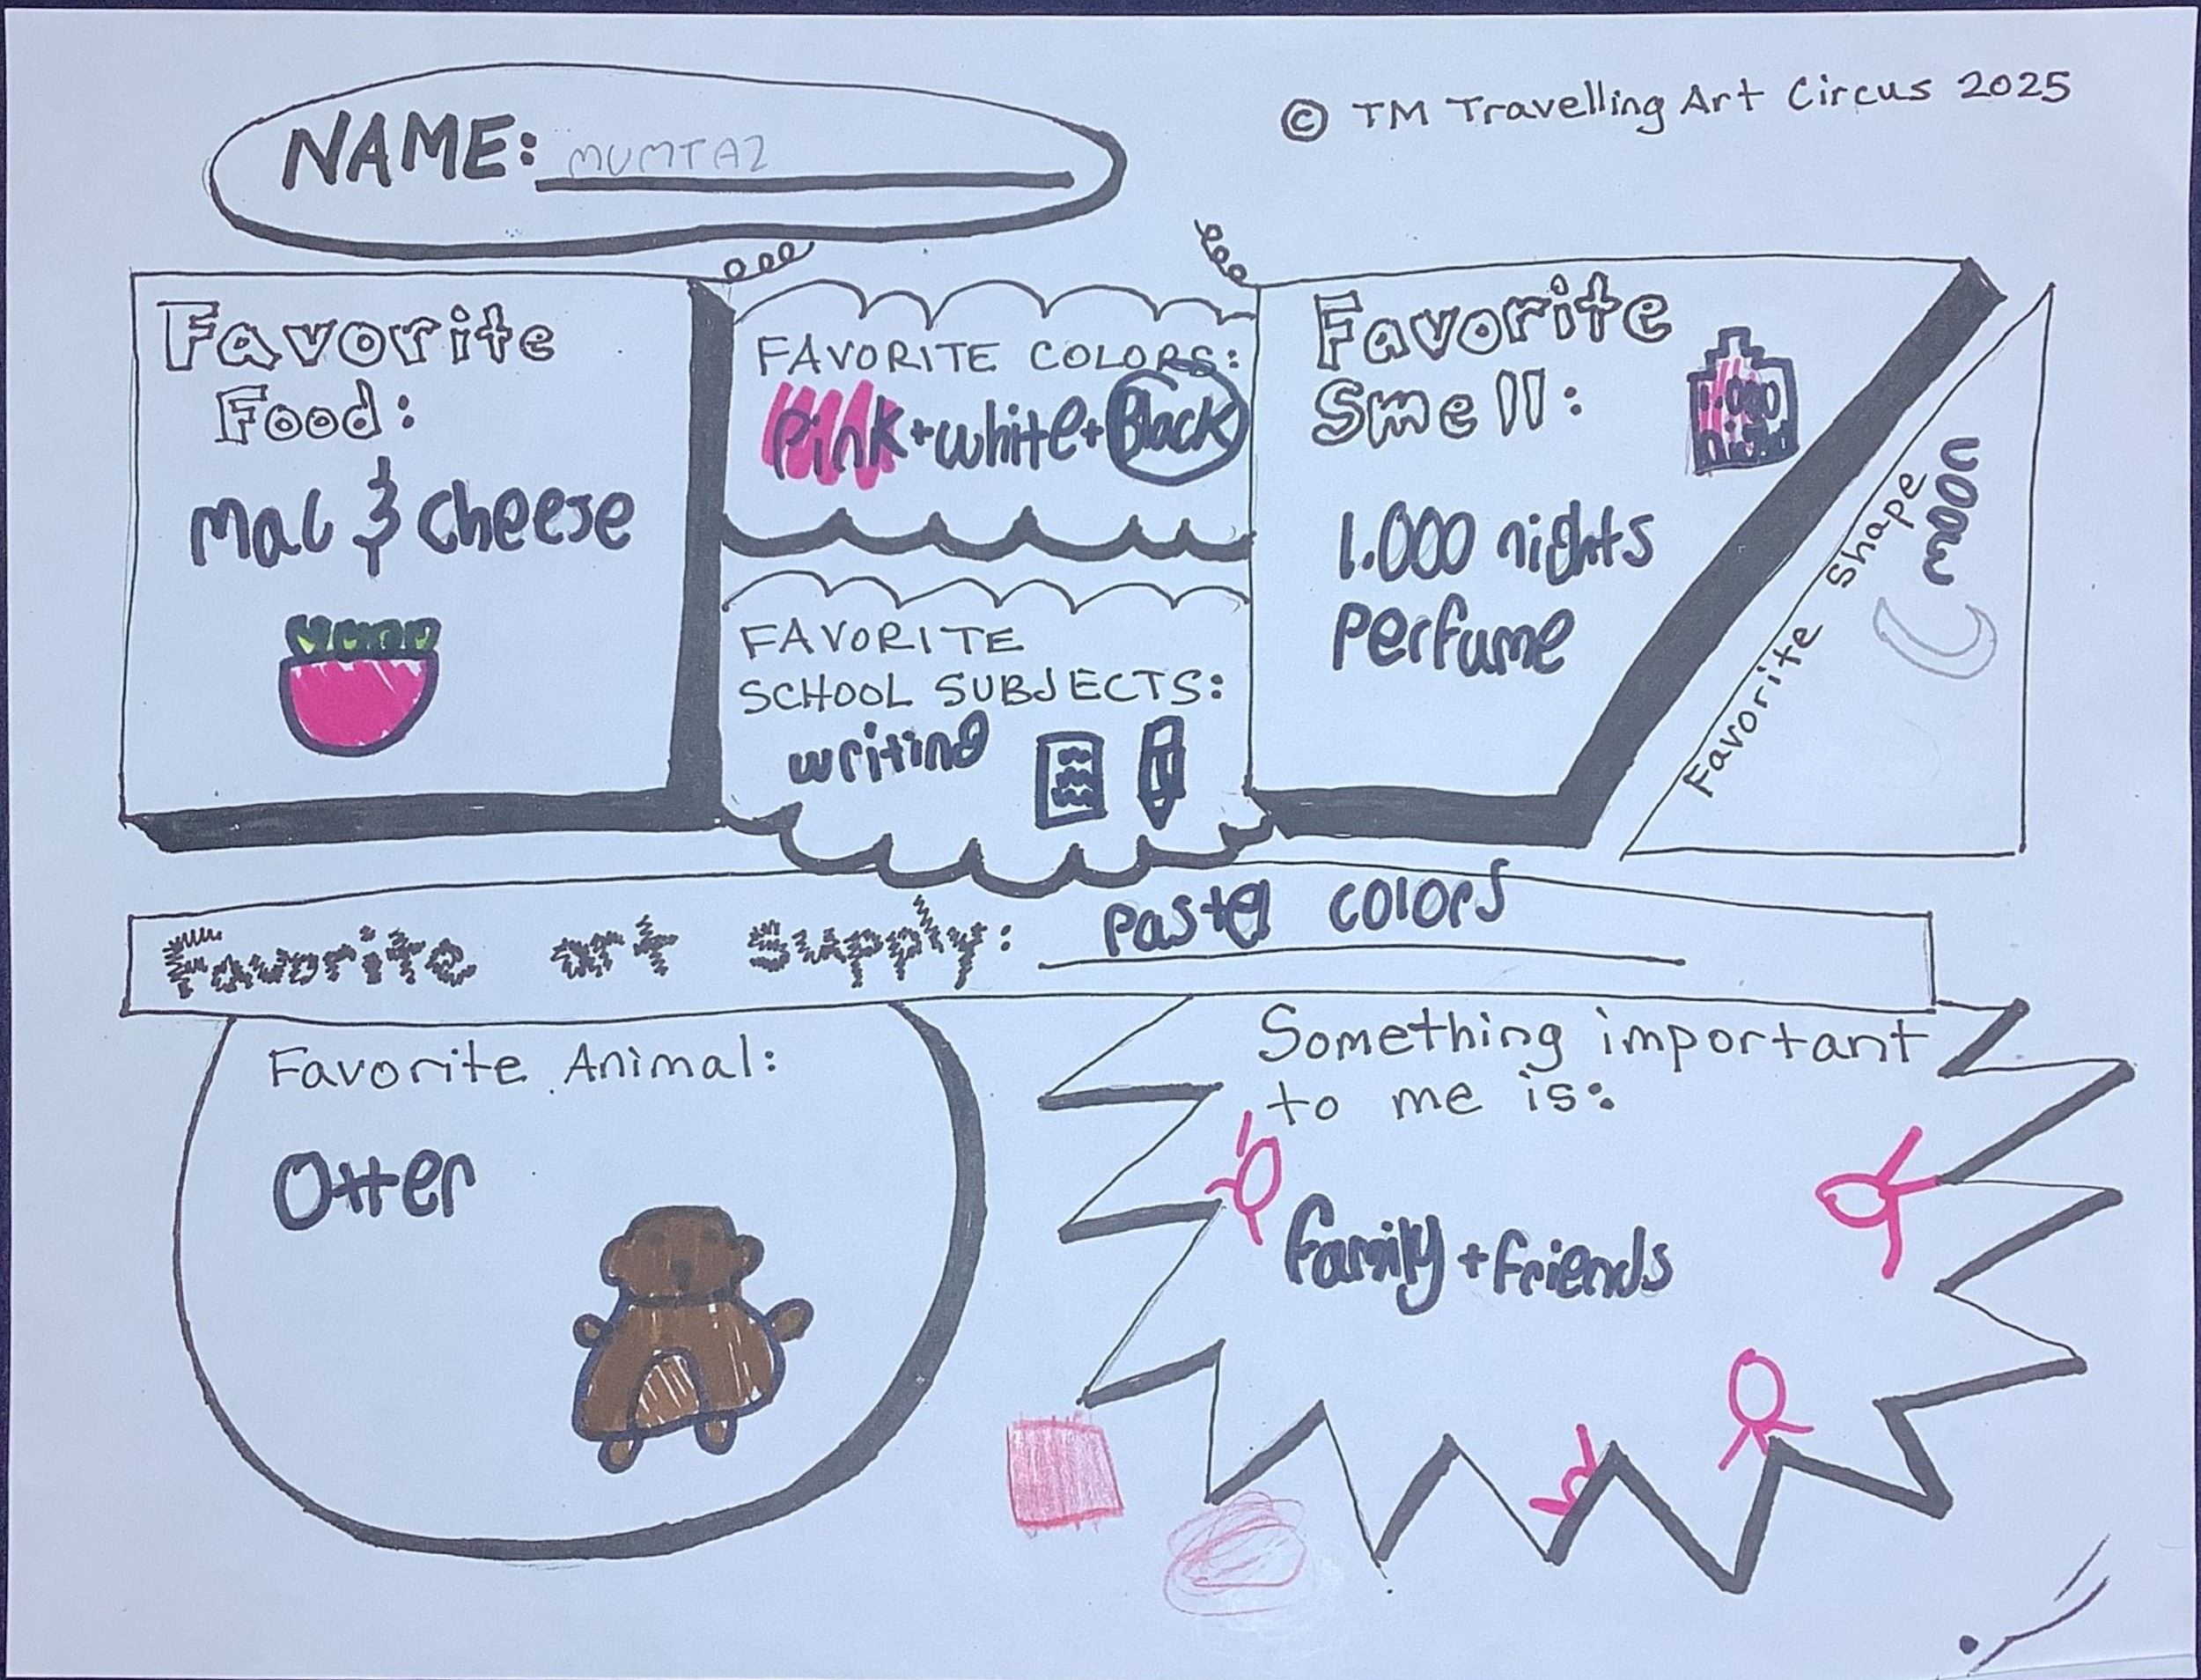 NAME: MUMTAZ
© TM Travelling Art Circus 2025
Favorite
Food:
mac & cheese
FAVORITE COLORS:
Pink + white + Black
FAVORITE
SCHOOL SUBJECTS:
writing
Favorite
Smell:
1.000
night
1.000 nights
Perfume
Favorite Shape
moon
Favorite art supply: pastel colors
Favorite Animal:
Otter
Something important
to me is:
family + friends